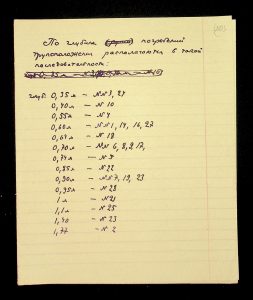 По глубине погребений
трупоположения располагаются в такой
последовательности:
глуб. 0,35 м – №№ 3, 24
0,40 м – № 10
0,55 м – № 4
0,60 м – №№ 1, 14, 16, 27
0,64 м – № 18
0,70 м – №№ 6, 8, 9, 17,
0,74 м – №
0,85 м – № 22
0,90 м – №№ 7, 19, 23
0,95 м – № 28
1 м – № 21
1,1 м – № 25
1,40 – № 23
1,77 – № 2